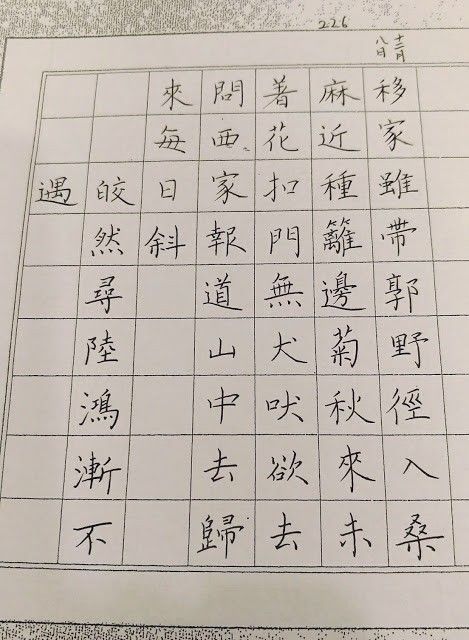 226
十一月
八日
移家雖帶郭野徑入桑
麻近種籬邊菊秋來未
著花扣門無犬吠欲去
問西家報道山中去歸
來每日斜
皎然尋陸鴻漸不
遇